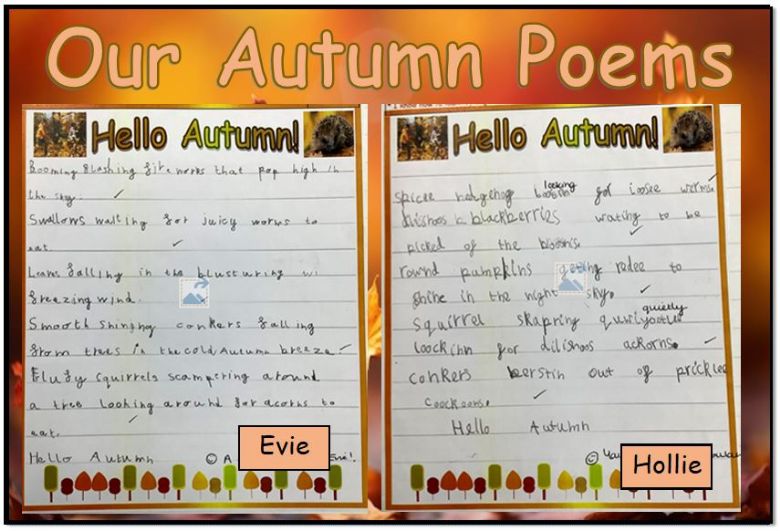 Our Autumn Poems
Hello Autumn!
Booming flashing fireworks that pop high in
the sky.
Swallows waiting for juicy worms to
eat.
Leaves falling in the blusturing wi
freezing wind.
Smooth shinghy conkers falling
from trees in the cold Autumn breeze.
Flufy squirrels scampering around
a tree looking around for acorns to
eat.
Hello Autumn © A Evie!
Evie
Hello Autumn!
Spicee hedgehog looking for loosee
dilishoos blackberries wating to be
picked of the
round pumpkins geting redee to
shine in the night sky.
Squirrel quietly
loockinn for dilishoos ackorns.
conkers berstin out of pricklee
Hello Autumn
©
Hollie